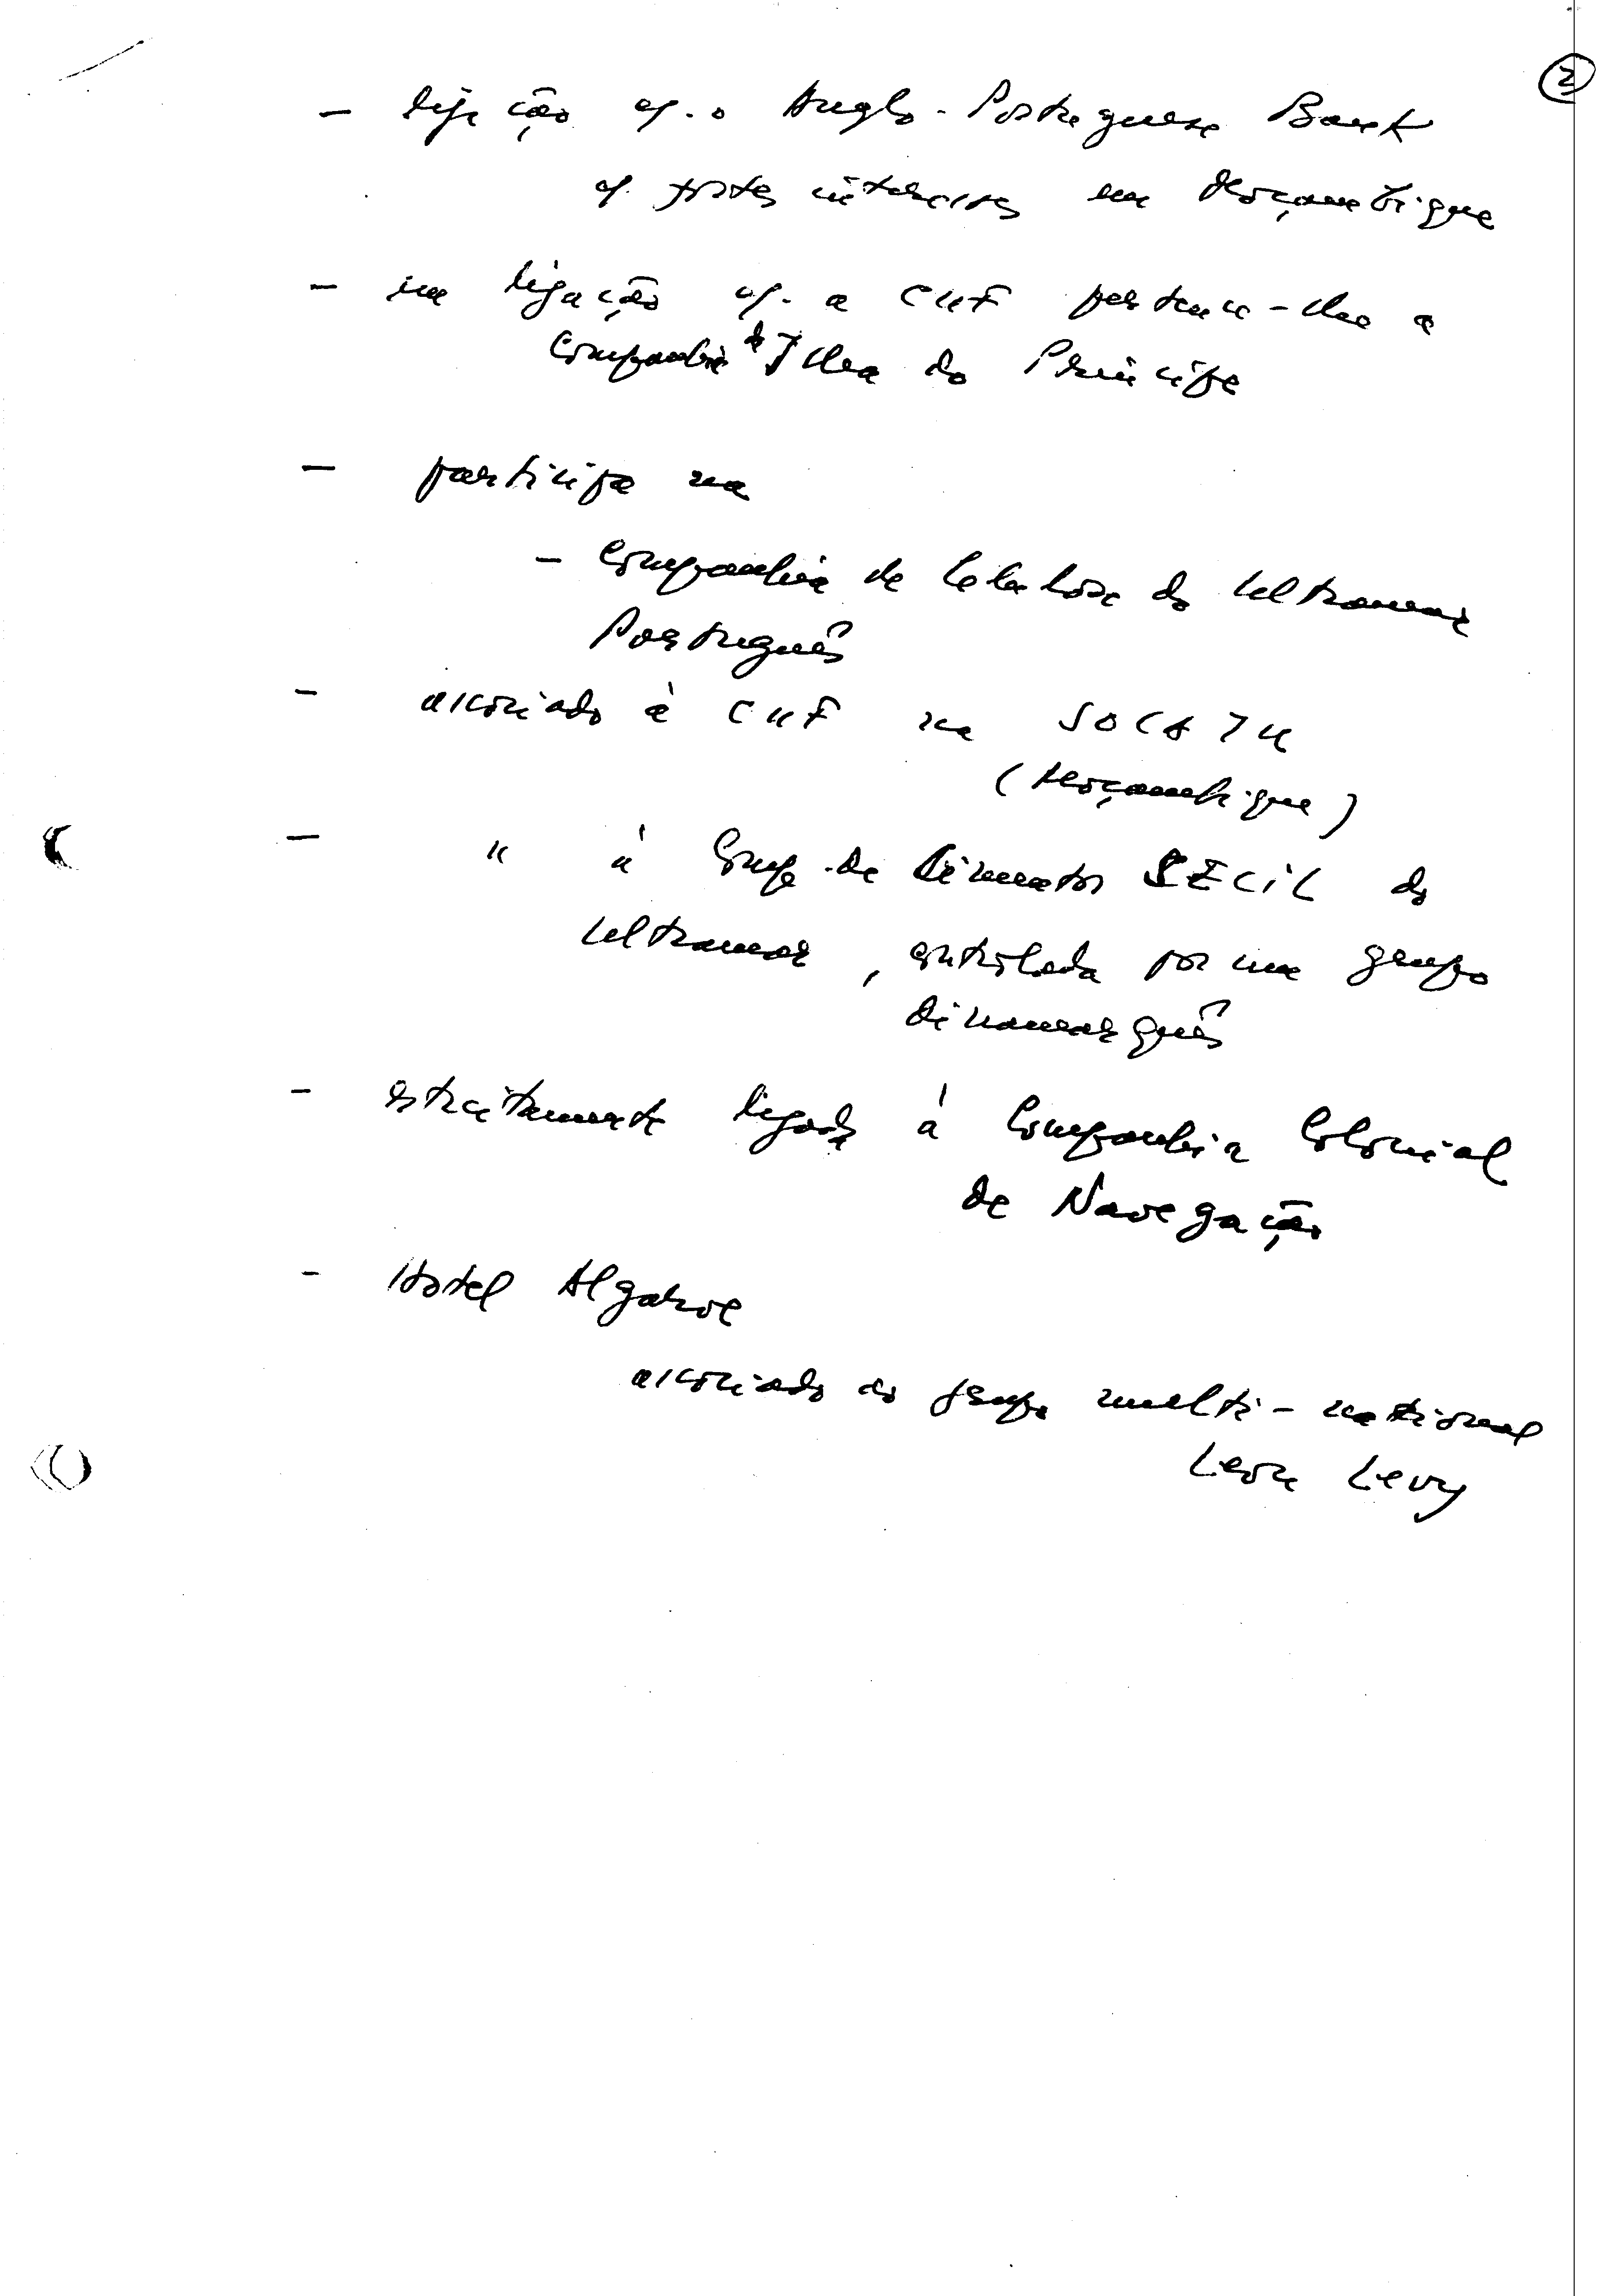 2
- ligação c/. o Anglo-Portuguese Bank
c/. fortes interesses em Moçambique
- em ligação c/. a CUF pertence-lhe a
Companhia da Ilha do Príncipe
- participa na
- Companhia de Celulose do Ultramar
Português
- associado à CUF na SOCAJU
(Moçambique)
- " à Comp. de Cimentos SECIL do
Ultramar, controlada por um grupo
dinamarquês
- estreitamente ligado à Companhia Colonial
de Navegação
- Hotel Algarve
associado ao grupo multi-national
Leon Levy